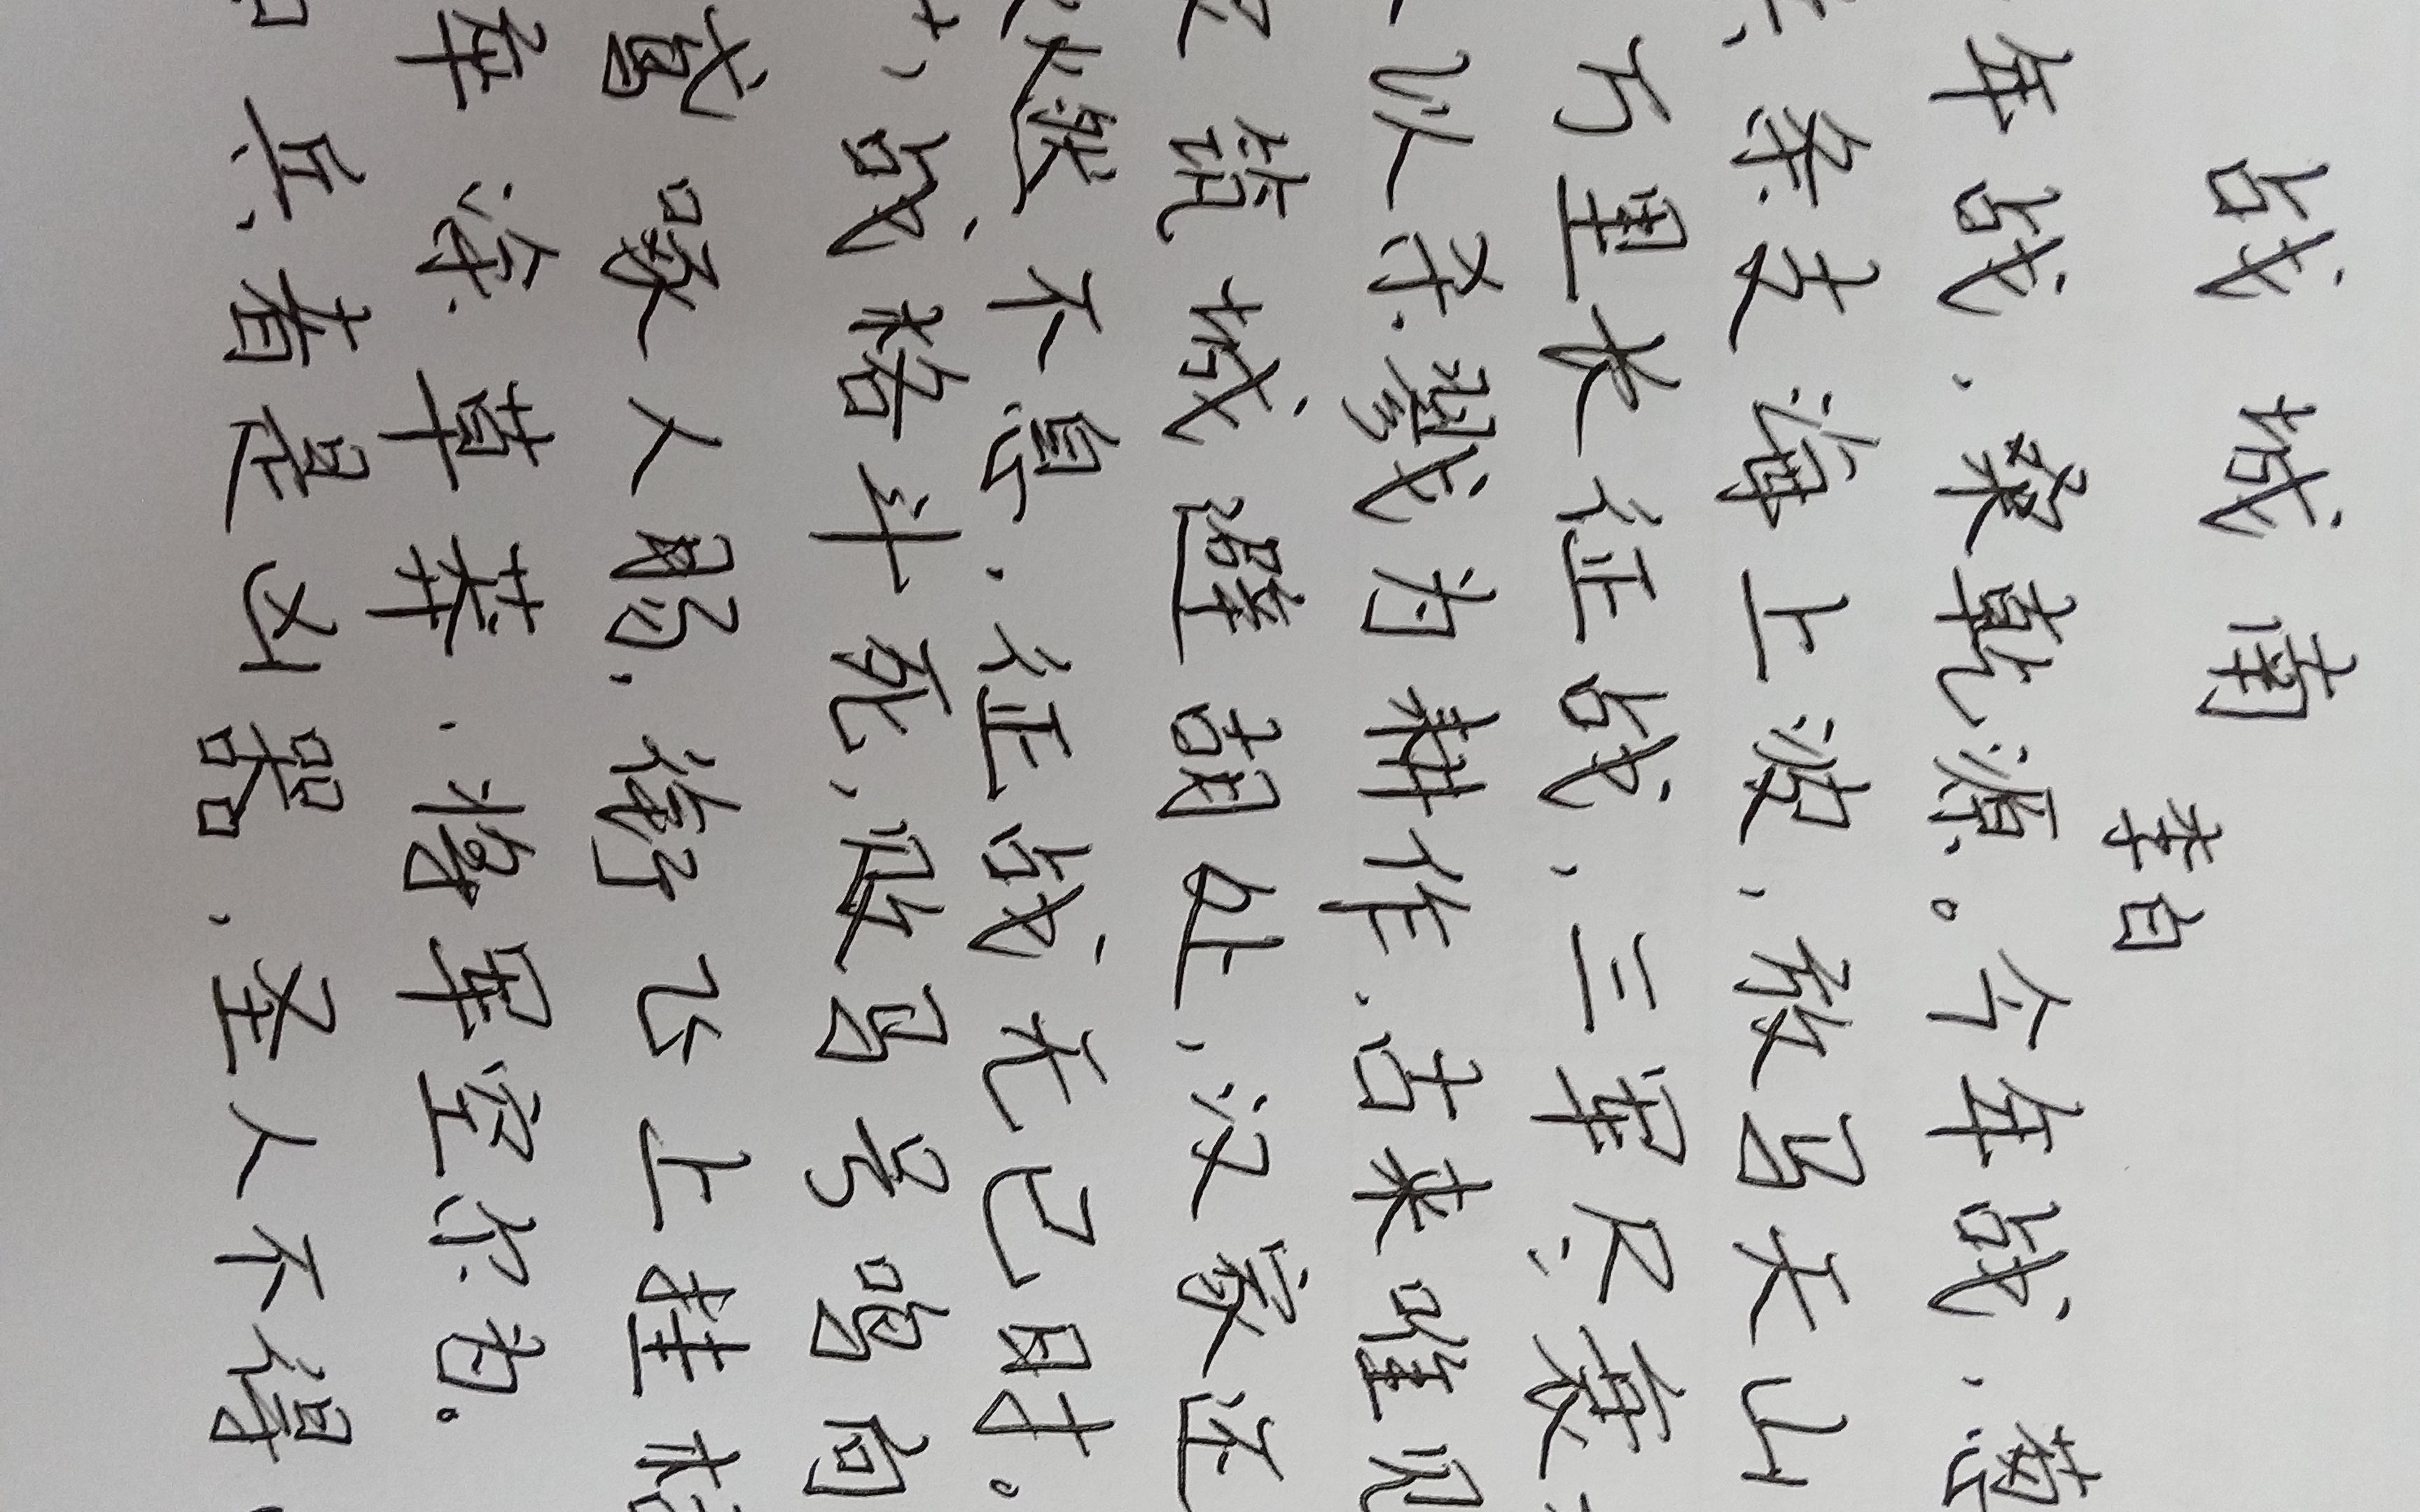 战城南
李白
年战,桑乾源。今年战,葱
条支海上波,放马天山
万里长征战,三军尽衰
以杀戮为耕作,古来唯见
筑城避胡处,汉家还
燃不息,征战无已时。
战格斗死,败马号鸣向
鸢啄人肠,衔飞上挂枯
卒涂草莽,将军空尔为。
兵者是凶器,圣人不得